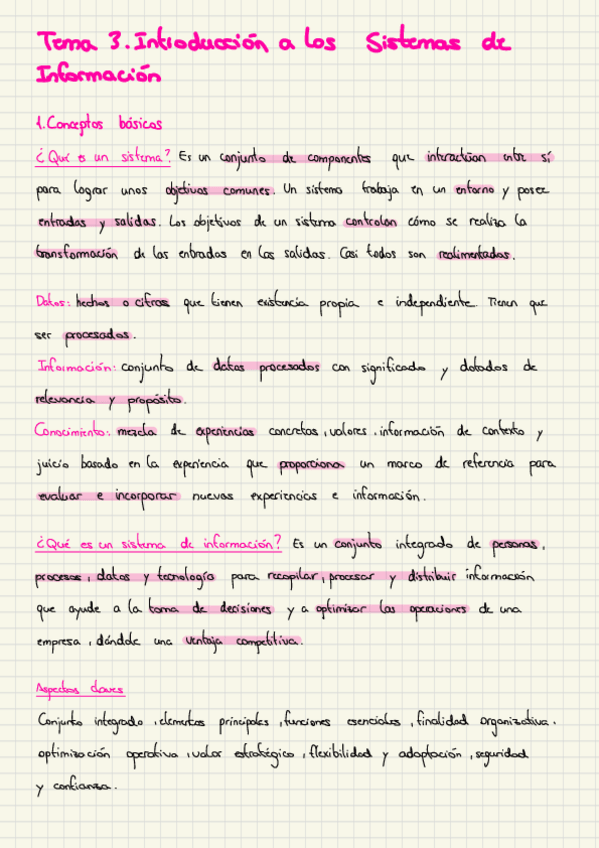 Tema 3. Introducción a los Sistemas de
Información
1. Conceptos básicos
¿Qué es un sistema? Es un conjunto de componentes que interactúan entre sí
para lograr unos objetivos comunes. Un sistema trabaja en un entorno y posee
entradas y salidas. Los objetivos de un sistema controlan cómo se realiza la
transformación de las entradas en las salidas. Casi todos son realimentados.
Datos: hechos o cifras que tienen existencia propia e independiente. Tienen que
ser procesados.
Información: conjunto de datos procesados con significado y dotados de
relevancia y propósito.
Conocimiento: mezcla de experiencias concretas, valores, información de contexto y
juicio basado en la experiencia que proporciona un marco de referencia para
evaluar e incorporar nuevas experiencias e información.
¿Qué es un sistema de información? Es un conjunto integrado de personas,
procesos, datos y tecnología para recopilar, procesar y distribuir información
que ayude a la toma de decisiones y a optimizar las operaciones de una
empresa, dándole una ventaja competitiva.
Aspectos claves
Conjunto integrado, elementos principales, funciones esenciales, finalidad organizativa,
optimización operativa, valor estratégico, flexibilidad y adaptación, seguridad
y confianza.